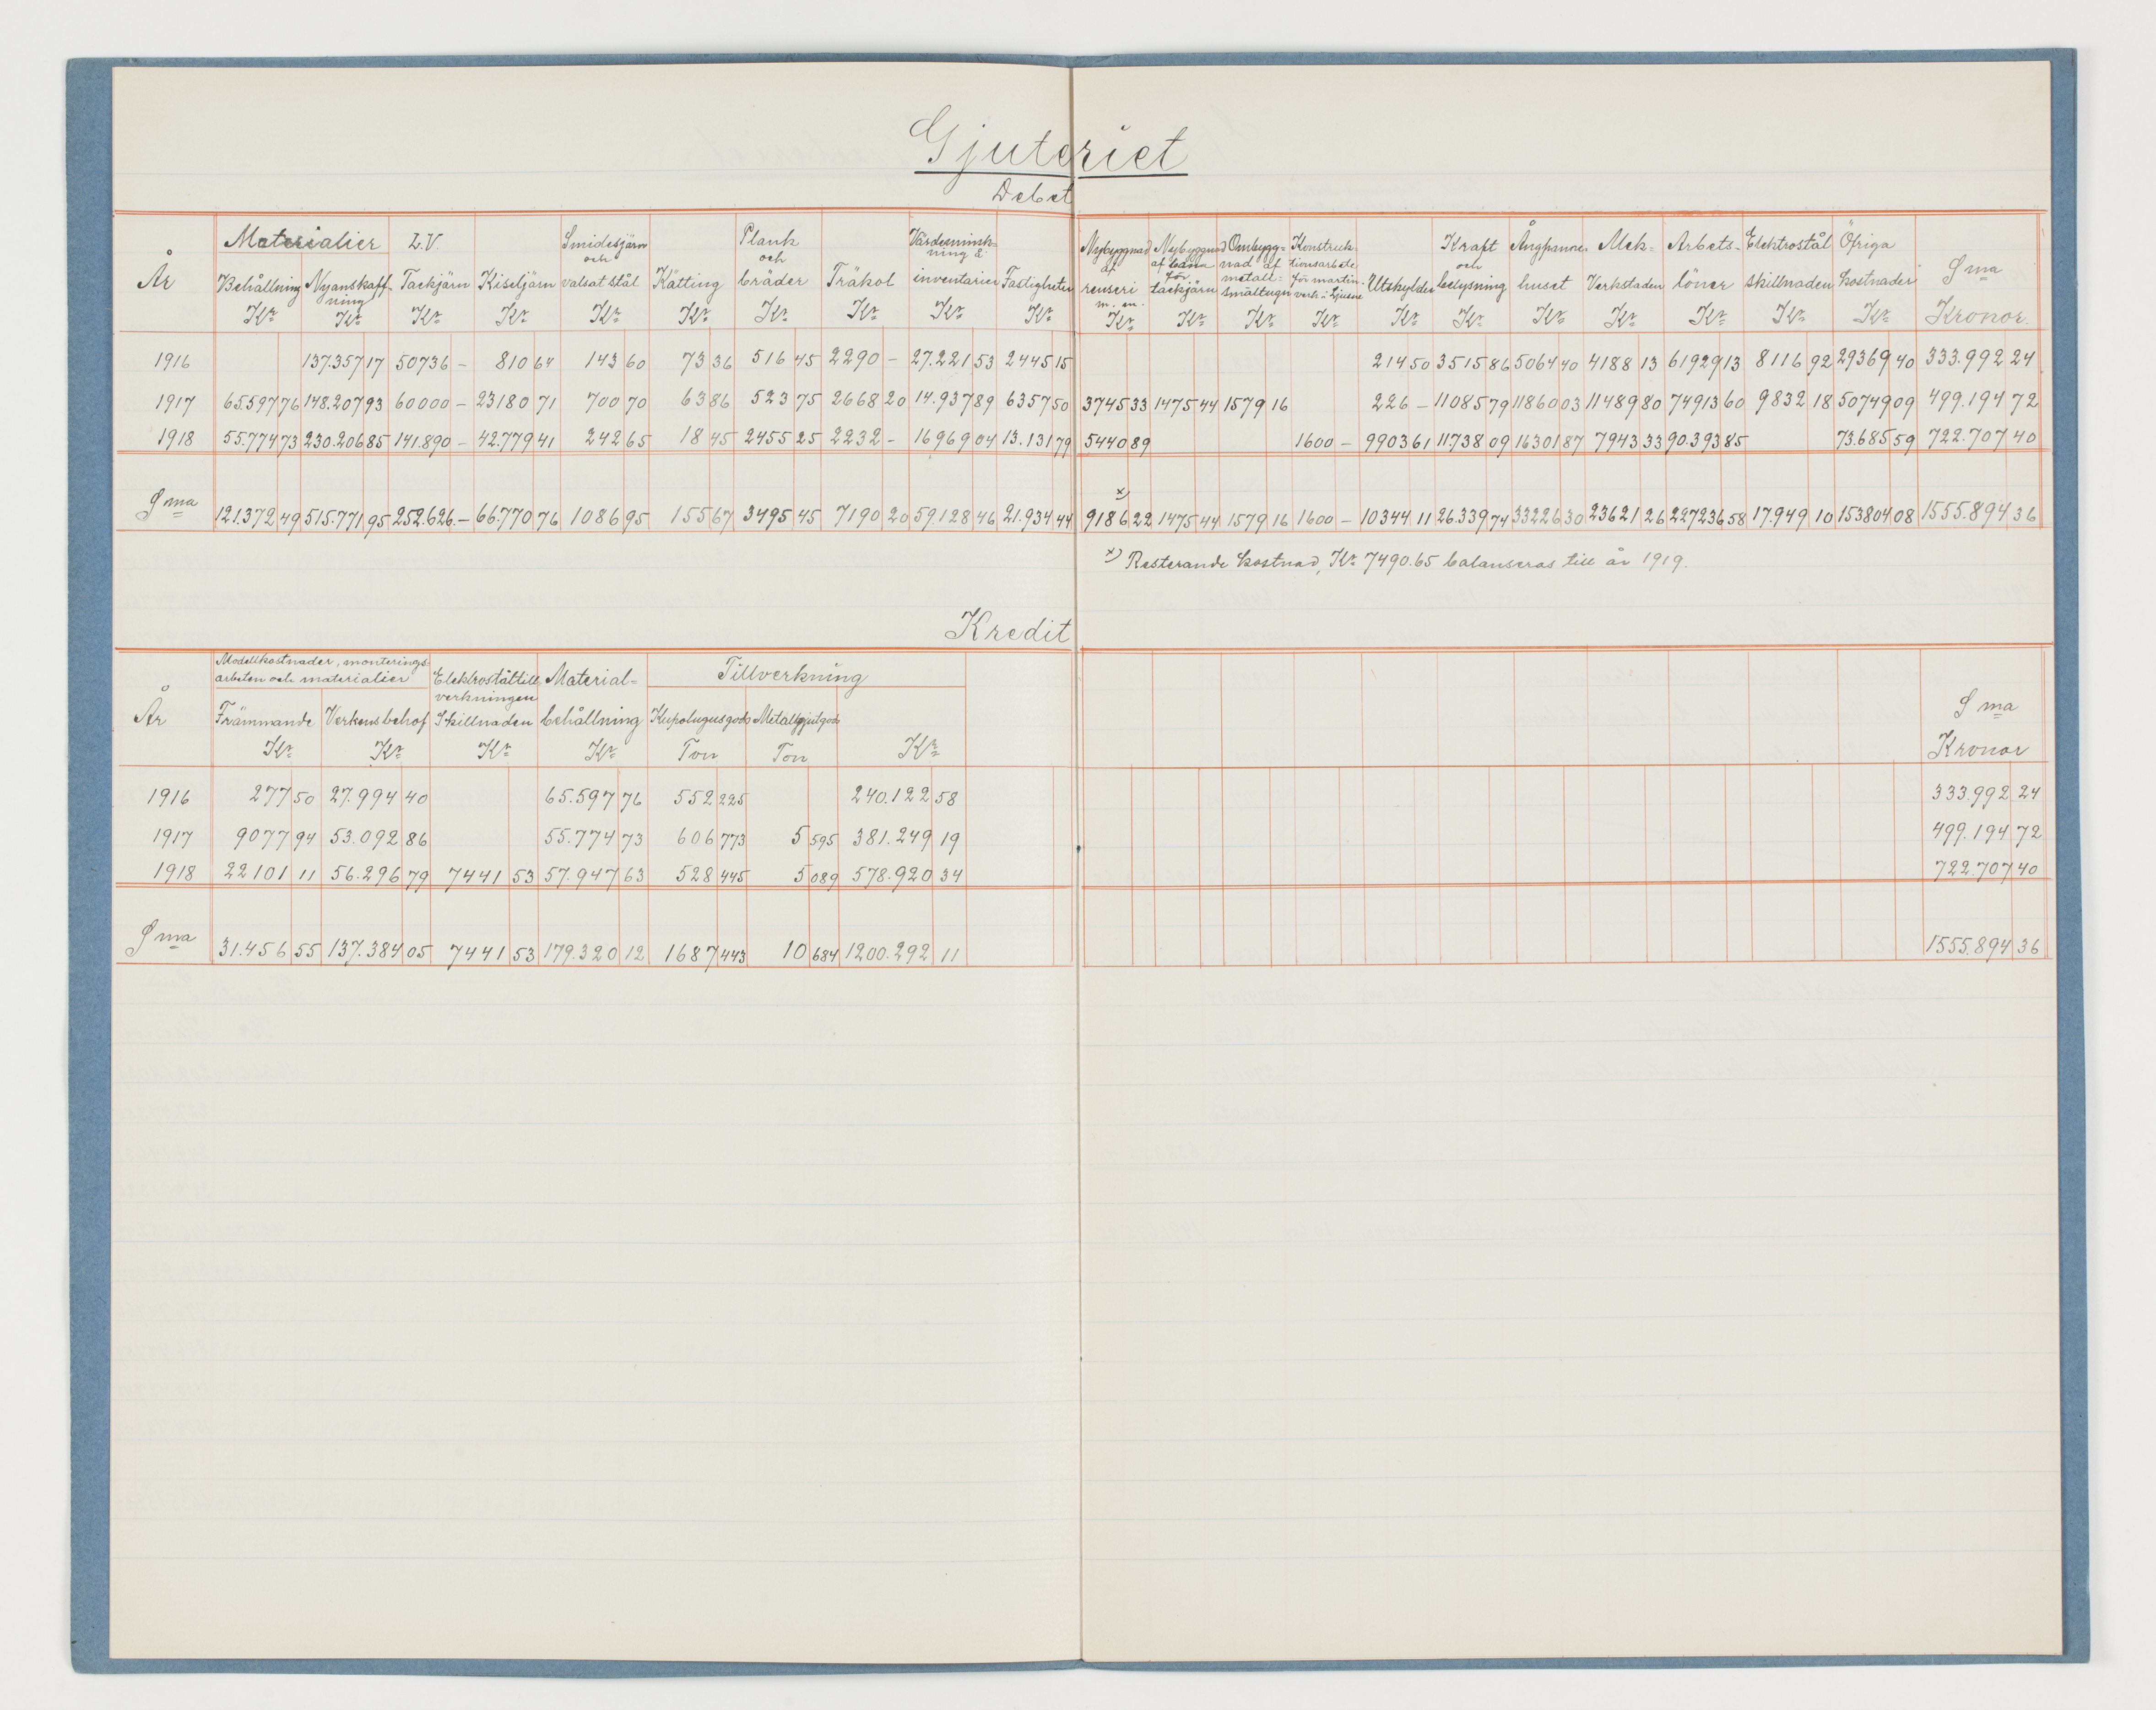 Gjuteriet
Debet
År Materialier L.V. Smidesjärn och valsat stål Plank och bräder Värdeminsk-ning å
Behållning Nyanskaff-ning Tackjärn Kiseljärn Kätting Träkol inventarier Fastigheter Nybyggnad af renseri m. m. Nybyggnad af bana för tackjärn Ombygg-nad af metall-smältugn Konstruk-tionsarbete för martin-verk i Ljusne Utskylder Kraft och belysning Ångpanne-huset Mek-Verkstaden Arbets-löner Elektrostål skillnaden Öfriga kostnader Sma
Kr Kr Kr Kr Kr Kr Kr Kr Kr Kr Kr Kr Kr Kr Kr Kr Kr Kr Kr Kr Kr Kronor.
1916 137.357 17 50736 – 810 64 143 60 73 36 516 45 2290 – 27.221 53 2445 15 214 50 3515 86 5064 40 4188 13 61929 13 8116 92 29369 40 333.992 24
1917 65.597 76 148.207 93 60000 – 23180 71 700 70 63 86 523 75 2668 20 14.937 89 6357 50 3745 33 1475 44 1579 16 226 – 11085 79 11860 03 11489 80 74913 60 9832 18 50749 09 499.194 72
1918 55.774 73 230.206 85 141.890 – 42.779 41 242 65 18 45 2455 25 2232 – 16969 04 13.131 79 5440 89 1600 – 9903 61 11738 09 16301 87 7943 33 90.393 85 73.685 59 722.707 40
x)
Sma 121.372 49 515.771 95 252.626. – 66.770 76 1086 95 155 67 3495 45 7190 20 59.128 46 21.934 44 9186 22 1475 44 1579 16 1600 – 10344 11 26.339 74 33226 30 23621 26 227236 58 17.949 10 153804 08 1555.894 36
x) Resterande kostnad, Kr 7490.65 balanseras till år 1919.
Kredit
År Modellkostnader, monterings-arbeten och materialier Elektroståltill-verkningen Material- Tillverkning
Främmande Verkens behof Skillnaden behållning Kupolugnsgods Metallgjutgods Sma
Kr Kr Kr Kr Ton Ton Kr Kronor
1916 277 50 27.994 40 65.597 76 552 225 240.122 58 333.992 24
1917 9077 94 53.092 86 55.774 73 606 773 5 595 381.249 19 499.194 72
1918 22101 11 56.296 79 7441 53 57.947 63 528 445 5 089 578.920 34 722.707 40
Sma 31.456 55 137.384 05 7441 53 179.320 12 1687 443 10 684 1200.292 11 1555.894 36